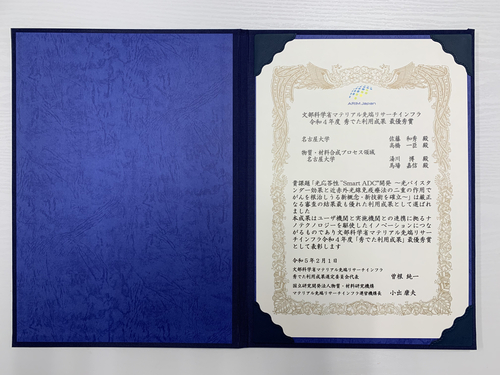 ARIM Japan
文部科学省マテリアル先端リサーチインフラ
令和4年度 秀でた利用成果 最優秀賞
名古屋大学 佐藤 和秀 殿
高橋 一臣 殿
物質・材料合成プロセス領域
名古屋大学 湯川 博 殿
馬場 嘉信 殿
貴課題「光応答性“Smart ADC”開発 〜光バイスタ
ンダー効果と近赤外光線免疫療法の二重の作用で
がんを根治しうる新概念・新技術を確立〜」は厳正
なる審査の結果最も優れた利用成果として選ばれ
ました
本成果はユーザ機関と実施機関との連携に拠るナ
ノテクノロジーを駆使したイノベーションにつな
がるものであり文部科学省マテリアル先端リサー
チインフラ令和4年度「秀でた利用成果」最優秀賞
として表彰します
令和5年2月1日
文部科学省マテリアル先端リサーチインフラ
秀でた利用成果選定委員会代表 曽根 純一
国立研究開発法人物質・材料研究機構
マテリアル先端リサーチインフラ運営機構長 小出 康夫